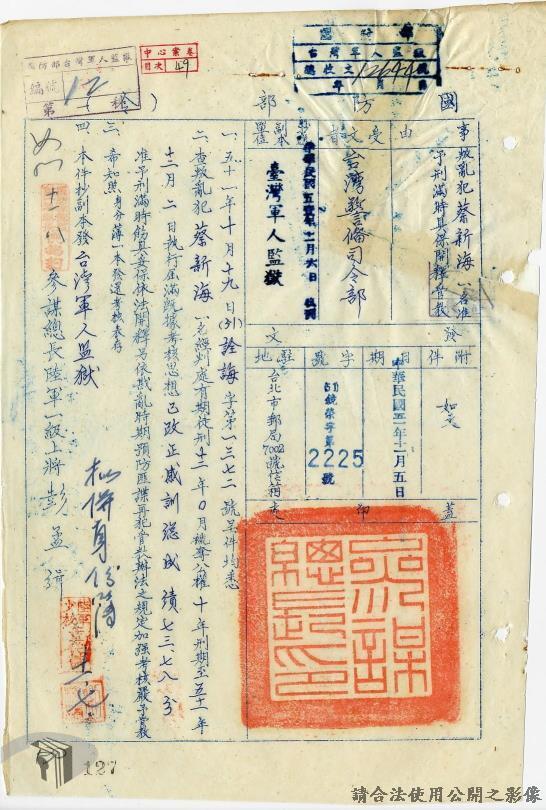 國防部台灣軍人監獄
編號 12
第
中心案卷
目次 49
台灣軍人監獄
總收文 12644 號
年 月 日
國防部
事由
叛亂犯蔡新海一名准予刑滿時具保開釋管教
受文者
台灣警備司令部
副本單位
臺灣軍人監獄
發文
附件
如文
日期
中華民國五一年十一月五日
字號
(51)銳崇字第
2225
號
駐地
台北市郵局7002號信箱
蓋印
參謀總長印
一、五十一年十月十九日(51)詮誨字第一三七二號呈件均悉
二、查叛亂犯蔡新海一名經判處有期徒刑十二年0月褫奪公權十年刑期至五十一年
十二月二日執行屆滿既據考核思想已改正感訓總成績七三.七八分
准予刑滿時飭具妥保依法開釋另依戡亂時期預防匪諜再犯管教辦法之規定加強考核嚴予管教
三、希知照身分簿一本發還考核表存
四、本件抄副本發台灣軍人監獄
參謀總長陸軍一級上將彭孟緝
十一、八
127
請合法使用公開之影像